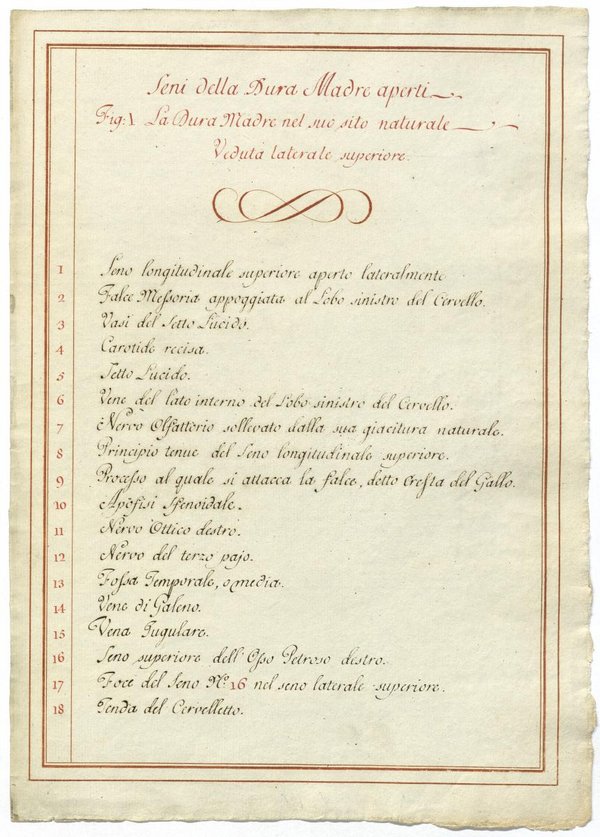 Seni della Dura Madre aperti
Fig: 1 La Dura Madre nel suo sito naturale
Veduta laterale superiore.
1 Seno longitudinale superiore aperto lateralmente
2 Falce Meſsoria appoggiata al Lobo sinistro del Cervello.
3 Vasi del Setto Lucido.
4 Carotide recisa.
5 Setto Lucido.
6 Vene del lato interno del Lobo sinistro del Cervello.
7 Nervo Olfattorio sollevato dalla sua giacitura naturale.
8 Principio tenue del Seno longitudinale superiore.
9 Processo al quale si attacca la falce, detto Creſta del Gallo.
10 Apofisi Sfenoidale.
11 Nervo Ottico destro.
12 Nervo del terzo pajo.
13 Foſsa Temporale, o media.
14 Vene di Galeno.
15 Vena Jugulare.
16 Seno superiore dell' Oſso Petroso destro.
17 Foce del Seno N.º 16 nel seno laterale superiore.
18 Tenda del Cervelletto.